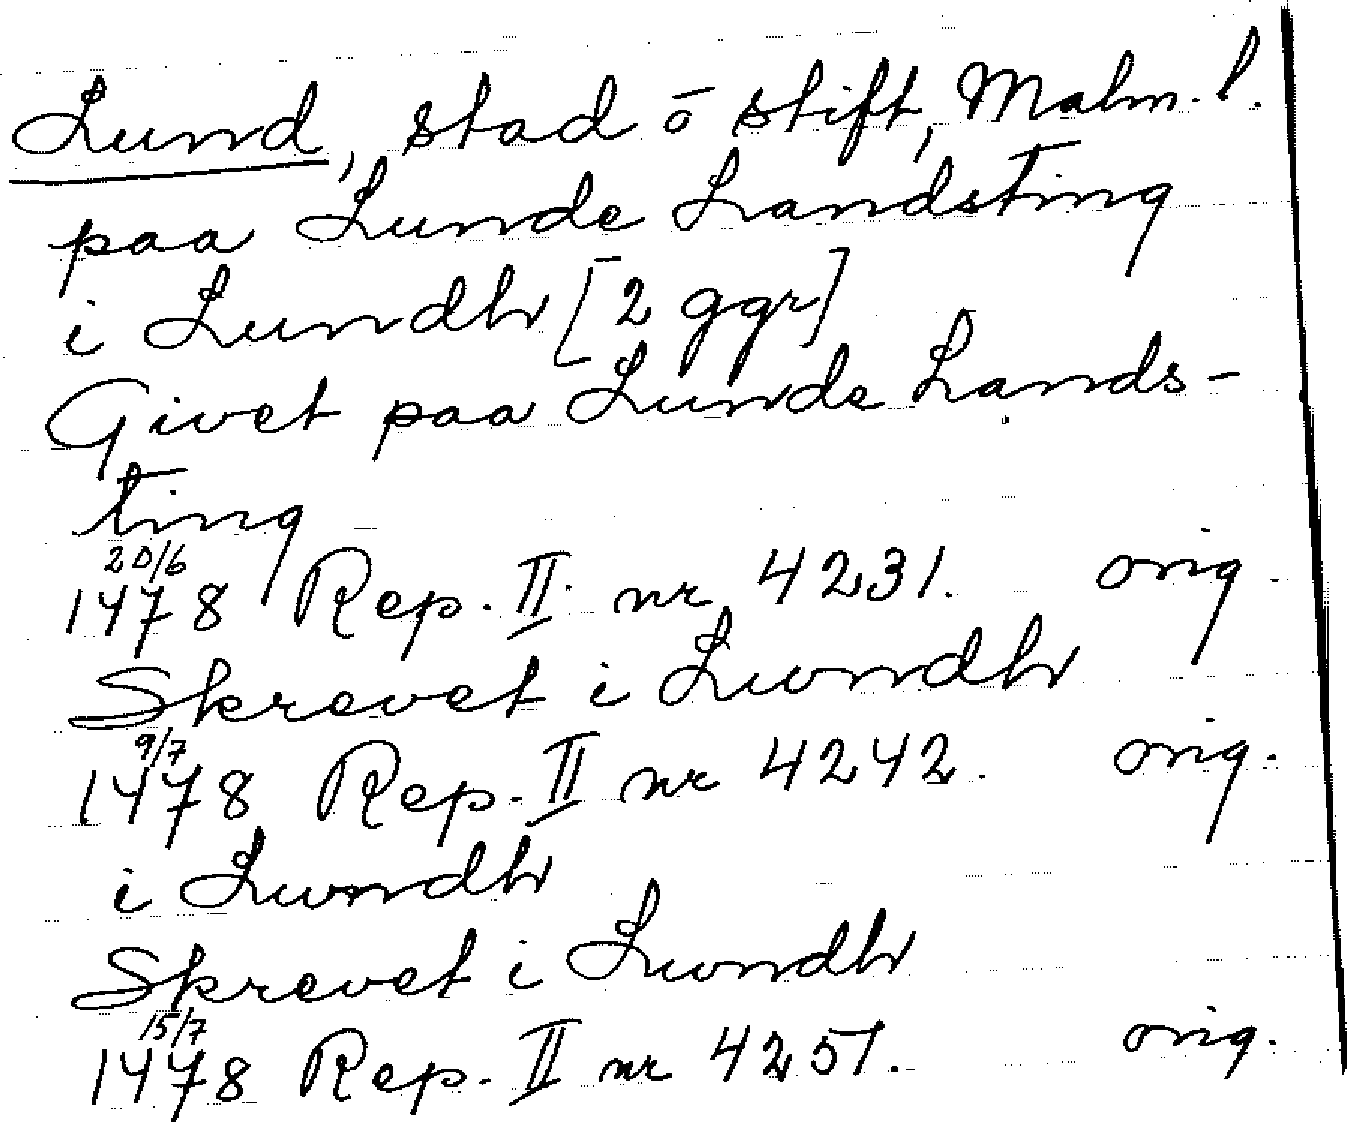 Lund, stad o stift, Malm. l.
paa Lunde Landsting
i Lundh [2 ggr]
Givet paa Lunde Lands-
ting
20/6
1478 Rep. II nr 4231. orig.
Skrevet i Lwndh
9/7
1478 Rep. II nr 4242. orig.
i Lwndh
Skrevet i Lwndh
15/7
1478 Rep. II nr 4251. orig.